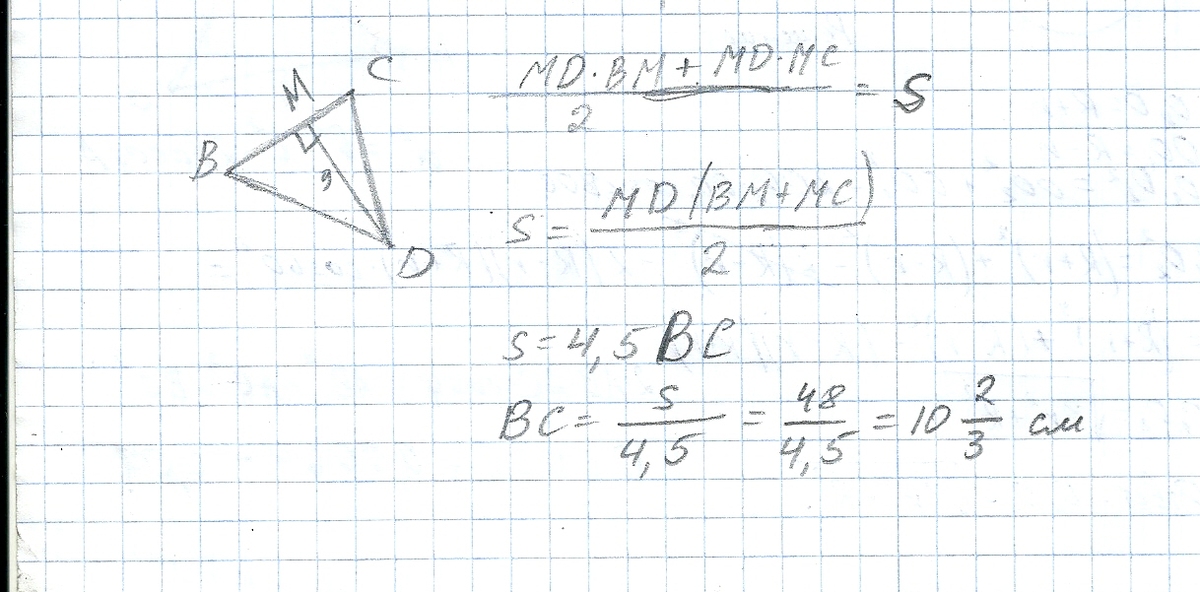 C
M
B
9
D
(MD·BM + MD·MC)/2 = S
S = MD(BM+MC)/2
S = 4,5 BC
BC = S/4,5 = 48/4,5 = 10 2/3 см